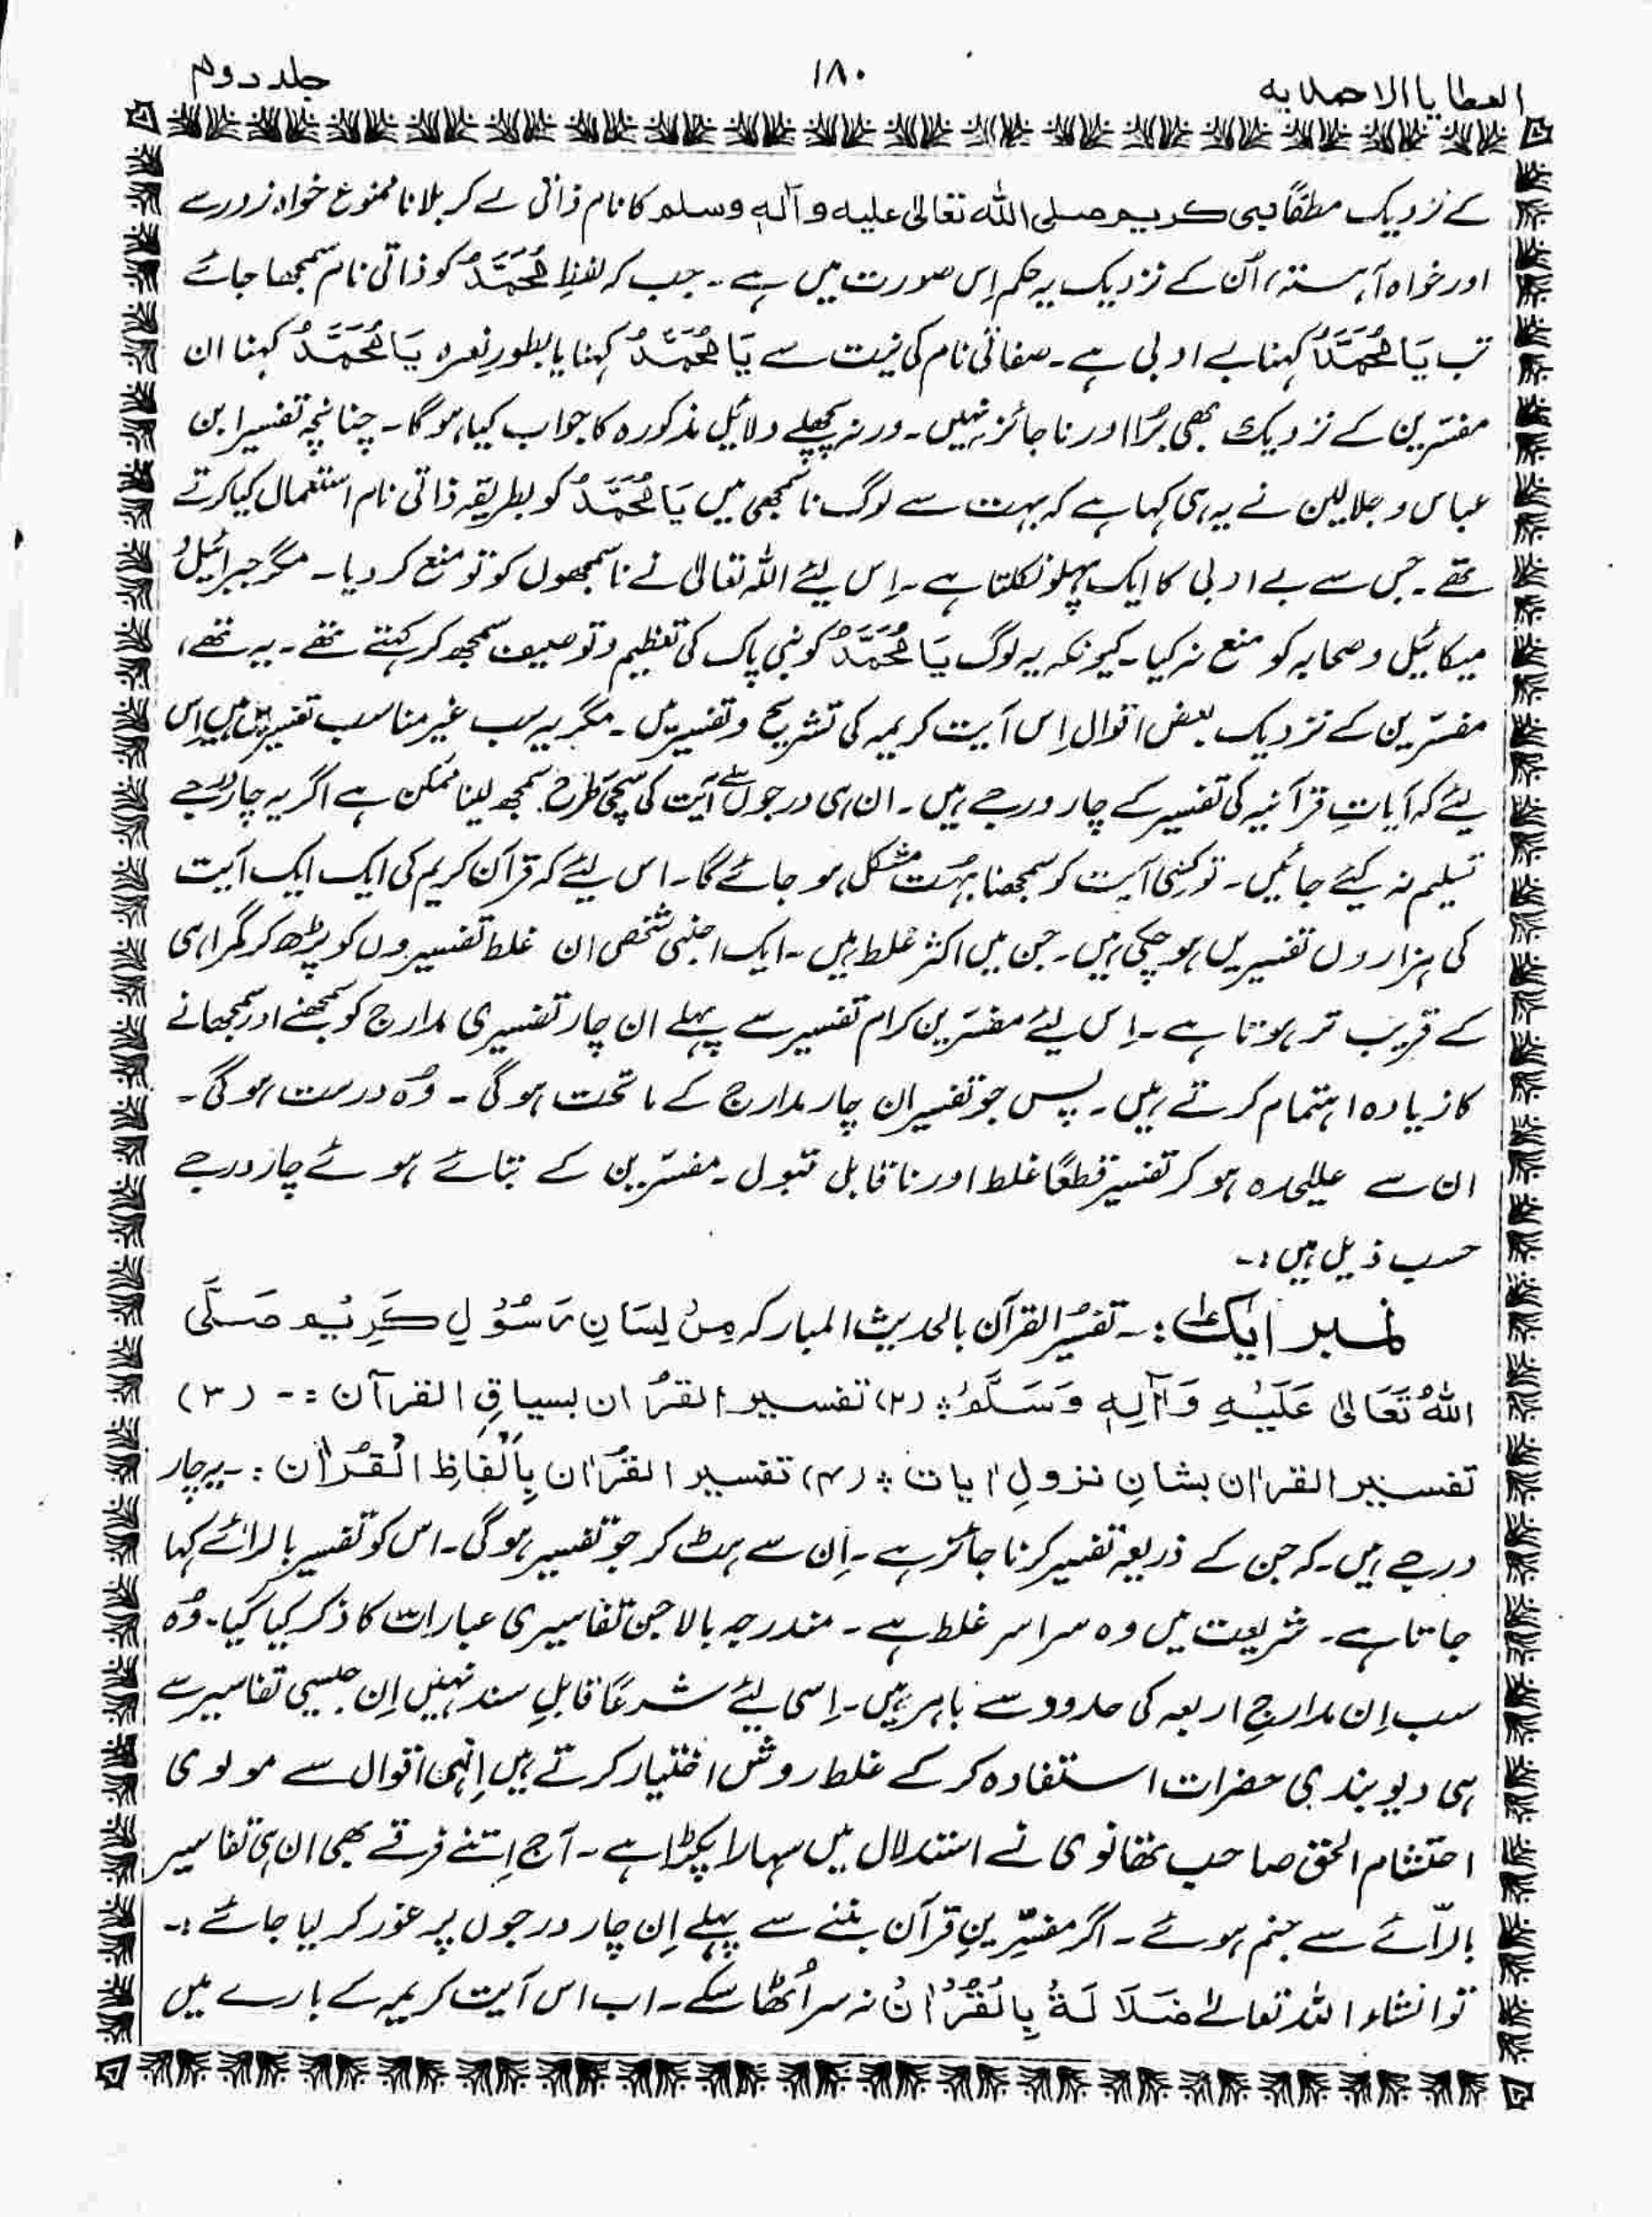 العطایا الاحمدیہ
۱۸۰
جلد دوم
کے نزدیک مطلقًا نبی کریم صلی اللہ تعالیٰ علیہ و آلہٖ وسلم کا نام ذاتی لے کر بلانا ممنوع خواہ زور سے
اور خواہ آہستہ، اُن کے نزدیک یہ حکم اِس صورت میں ہے۔ جب کہ لفظِ مُحَمَّدُ کو ذاتی نام سمجھا جائے
تب یَا مُحَمَّدُ کہنا بے ادبی ہے۔ صفاتی نام کی نیت سے یَا مُحَمَّدُ کہنا یا بطورِ نعرہ یَا مُحَمَّدُ کہنا ان
مفسّرین کے نزدیک بھی بُرا اور ناجائز نہیں۔ ورنہ پچھلے دلائلِ مذکورہ کا جواب کیا ہو گا۔ چنانچہ تفسیر ابن
عباس و جلالین نے یہ ہی کہا ہے کہ بہت سے لوگ ناسمجھی میں یَا مُحَمَّدُ کو بطریقہ ذاتی نام استعمال کیا کرتے
تھے۔ جس سے بے ادبی کا ایک پہلو نکلتا ہے۔ اِس لیئے اللہ تعالیٰ نے ناسمجھوں کو تو منع کر دیا۔ مگر جبرائیل و
میکائیل و صحابہ کو منع نہ کیا۔ کیونکہ یہ لوگ یَا مُحَمَّدُ کو نبی پاک کی تعظیم و توصیف سمجھ کر کہتے تھے۔ یہ تھے،
مفسّرین کے نزدیک بعض اقوال اِس آیت کریمہ کی تشریح و تفسیر میں۔ مگر یہ سب غیر مناسب تفسیریں ہیں اِس
لیئے کہ آیاتِ قرآنیہ کی تفسیر کے چار درجے ہیں۔ ان ہی درجوں سے آیت کی سچی طرح سمجھ لینا ممکن ہے اگر یہ چار درجے
تسلیم نہ کیئے جائیں۔ تو کسی آیت کو سمجھنا بہُت مشکل ہو جائے گا۔ اس لیئے کہ قرآن کریم کی ایک ایک آیت
کی ہزاروں تفسیریں ہو چکی ہیں۔ جن میں اکثر غلط ہیں۔ ایک اجنبی شخص ان غلط تفسیروں کو پڑھ کر گمراہی
کے قریب تر ہوتا ہے۔ اِس لیئے مفسّرین کرام تفسیر سے پہلے ان چار تفسیری مدارج کو سمجھنے اور سمجھانے
کا زیادہ اہتمام کرتے ہیں۔ پس جو تفسیر ان چار مدارج کے ماتحت ہو گی۔ وُہ درست ہو گی۔
ان سے علیٰحدہ ہو کر تفسیر قطعًا غلط اور ناقابل قبول۔ مفسّرین کے بتائے ہوئے چار درجے
حسب ذیل ہیں :۔
نمبر ایک :۔ تفسیُر القرآن بالحدیث المبارکہ مِنْ لِسَانِ رَسُوْلِ کَرِیْم صَلَّی
اللہُ تَعَالیٰ عَلَیْہِ وَ آلِہٖ وَسَلَّمْ ؛ (۲) تفسیر القرُان بسیاقِ القرآن :۔ (۳)
تفسیر القراٰن بشانِ نزولِ اٰیات ؛ (۴) تفسیر القرُاٰن بِاَلْفَاظِ الْقُرْاٰن :۔ یہ چار
درجے ہیں۔ کہ جن کے ذریعہ تفسیر کرنا جائز ہے۔ اِن سے ہٹ کر جو تفسیر ہو گی۔ اس کو تفسیر بالرائے کہا
جاتا ہے۔ شریعت میں وہ سراسر غلط ہے۔ مندرجہ بالا جن تفاسیری عبارات کا ذکر کیا گیا۔ وُہ
سب اِن مدارجِ اربعہ کی حدود سے باہر ہیں۔ اِسی لیئے شرعًا قابلِ سند نہیں اِن جیسی تفاسیر سے
ہی دیوبندی حضرات استفادہ کر کے غلط روش اختیار کرتے ہیں اِنہی اقوال سے مولوی
احتشام الحق صاحب تھانوی نے استدلال میں سہارا پکڑا ہے۔ آج اِتنے فرقے بھی ان ہی تفاسیر
بالرّائے سے جنم ہوئے۔ اگر مفسِّرینِ قرآن بننے سے پہلے اِن چار درجوں پر غور کر لیا جائے :۔
تو انشاء اللہ تعالےٰ ضَلَالَۃُ بِالْقُرْاٰنْ نہ سر اُٹھا سکے۔ اب اس آیت کریمہ کے بارے میں